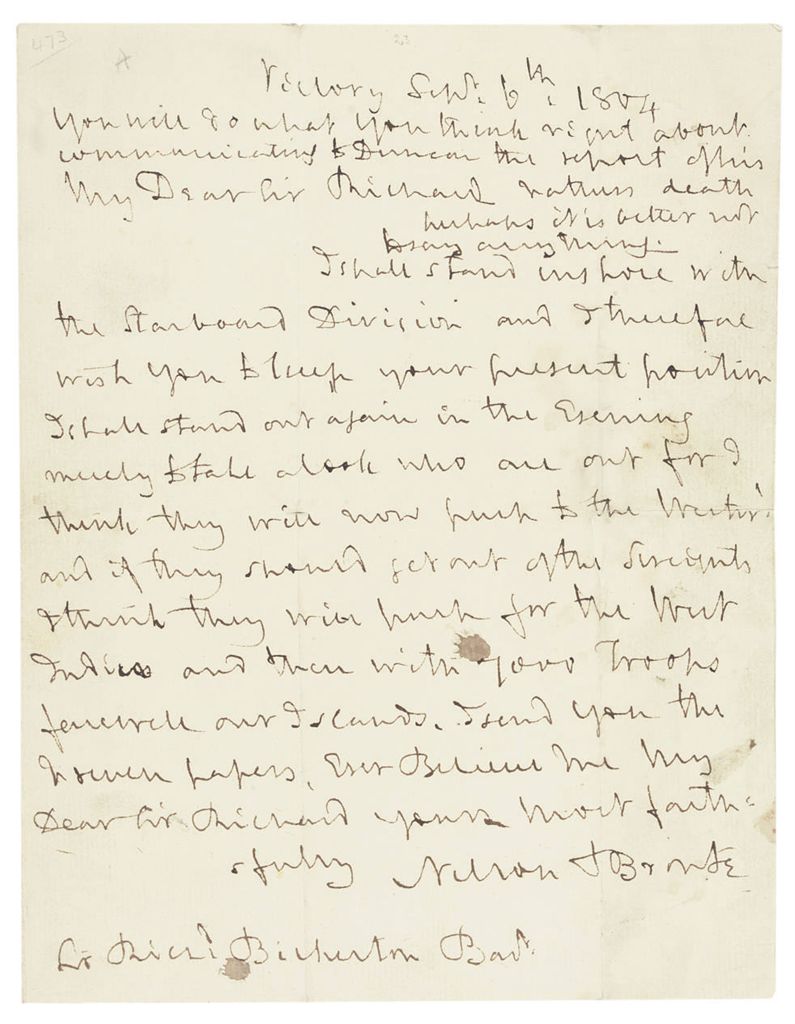 473
Victory Sept: 6th: 1804
You will do what You think right about
communicating to Duncan the report of his
My Dear Sir Richard fathers death
perhaps it is better not
to say anything.
I shall stand inshore with
the Starboard Division and I therefore
wish You to keep your present position
I shall stand out again in the Evening
merely to take a look who are out for I
think they will now push to the Westwd:
and if they should get out of the Streights
I think they will push for the West
Indies and then with 7000 Troops
farewell our Islands. I send You the
papers, Ever Believe Me My
Dear Sir Richard yours Most faith=
=fully Nelson & Bronte
Sr Richd: Bickerton Bart: